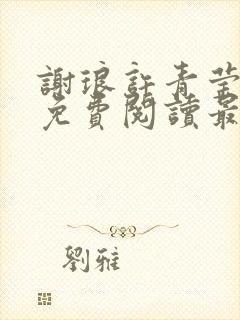 謝琅許青瑩
免費閱讀最
劉雅